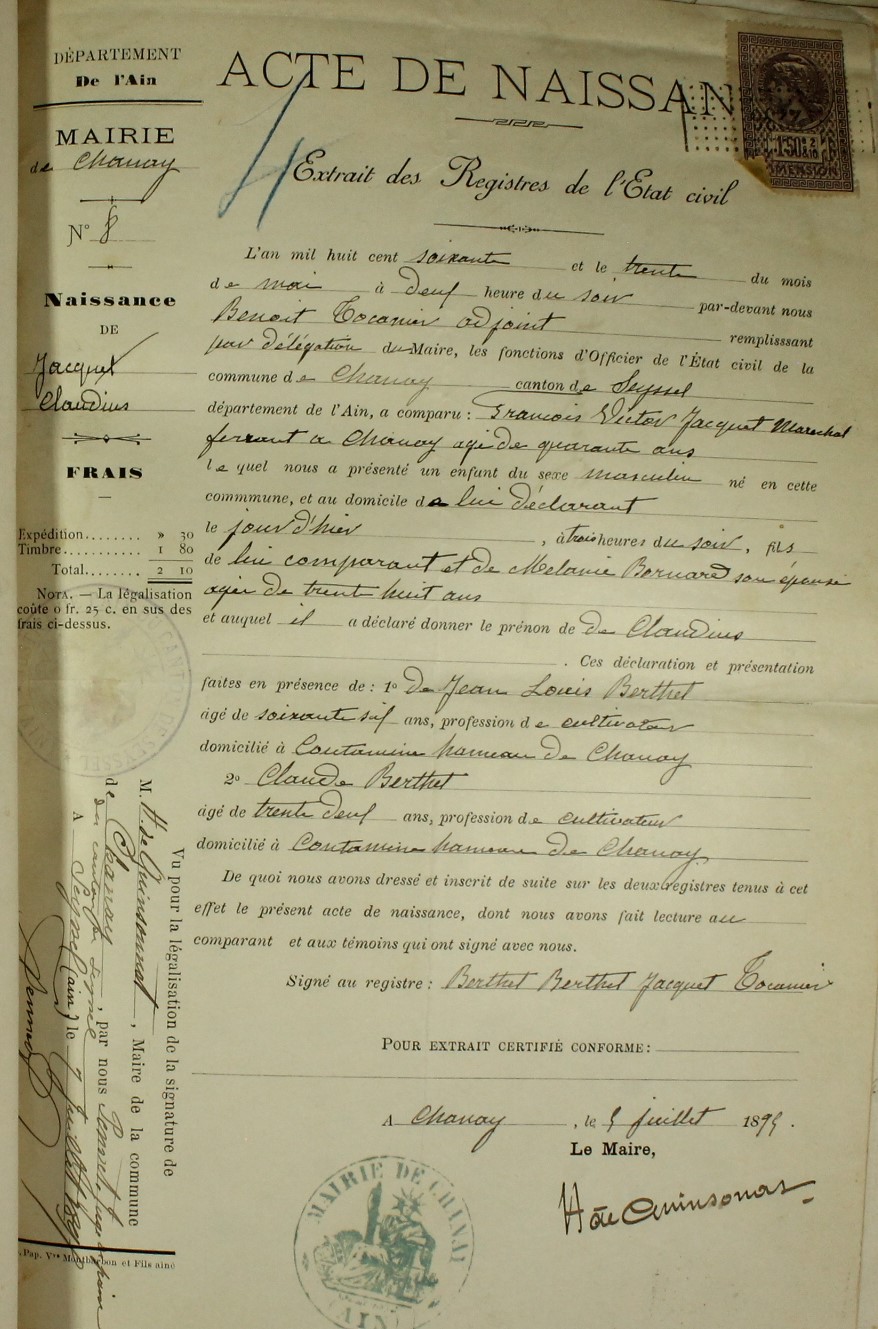 DÉPARTEMENT
De l'Ain
MAIRIE
de Chanay
N° 8
Naissance
DE
Jacquet
Claudius
FRAIS
Expédition........ » 30
Timbre........... 1 80
Total....... 2 10
NOTA. — La légalisation
coûte 0 fr. 25 c. en sus des
frais ci-dessus.
ACTE DE NAISSAN
1 50
DIMENSION
Extrait des Registres de l'Etat civil
L'an mil huit cent soixante et le trente du mois
de mai à deux heure du soir par-devant nous
Benoit Tocanier adjoint remplisssant
par délégation du Maire, les fonctions d'Officier de l'État civil de la
commune de Chanay canton de Seyssel
département de l'Ain, a comparu : François Victor Jacquet Marechal
ferrant a Chanay agé de quarante ans
le quel nous a présenté un enfant du sexe masculin né en cette
commmune, et au domicile de lui déclarant
le jour d'hier , à trois heures du soir, fils
de lui comparant et de Melanie Bornard son épouse
agée de trente huit ans
et auquel il a déclaré donner le prénon de de Claudius
. Ces déclaration et présentation
faites en présence de : 1° de Jean Louis Berthet
âgé de soixante six ans, profession de cultivateur
domicilié à Contamine hameau de Chanay
2° Claude Berthet
âgé de trente deux ans, profession de cultivateur
domicilié à Contamine hameau de Chanay
De quoi nous avons dressé et inscrit de suite sur les deux registres tenus à cet
effet le présent acte de naissance, dont nous avons fait lecture au
comparant et aux témoins qui ont signé avec nous.
Signé au registre : Berthet Berthet Jacquet Tocanier
POUR EXTRAIT CERTIFIÉ CONFORME :
A Chanay , le 5 juillet 1895.
Le Maire,
H de Quinsonas
MAIRIE DE CHANAY
(AIN)
Vu pour la légalisation de la signature de
M. H. de Quinsonnat , Maire de la commune
de Chanay , par nous
du canton de Seyssel
A Seyssel (ain) le 7 juillet
Pap. Vve Montbarbon et Fils ainé